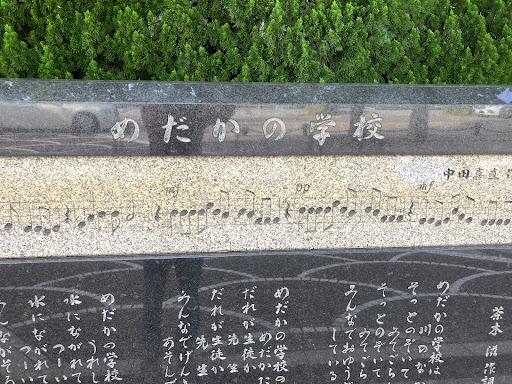 めだかの学校
中田喜直
mf
pp
mf
茶木 滋 作詞
めだかの学校は
川のなか
そっとのぞいて
みてごらん
そっとのぞいて
みてごらん
みんなでおゆう
している
めだかの学校の
めだか
だれが生徒か
先生
だれが生徒か
先生
みんなでげんき
あそん
めだかの学校
うれし
水にながれて
つーい
水にながれて
つーい
みんながそろ